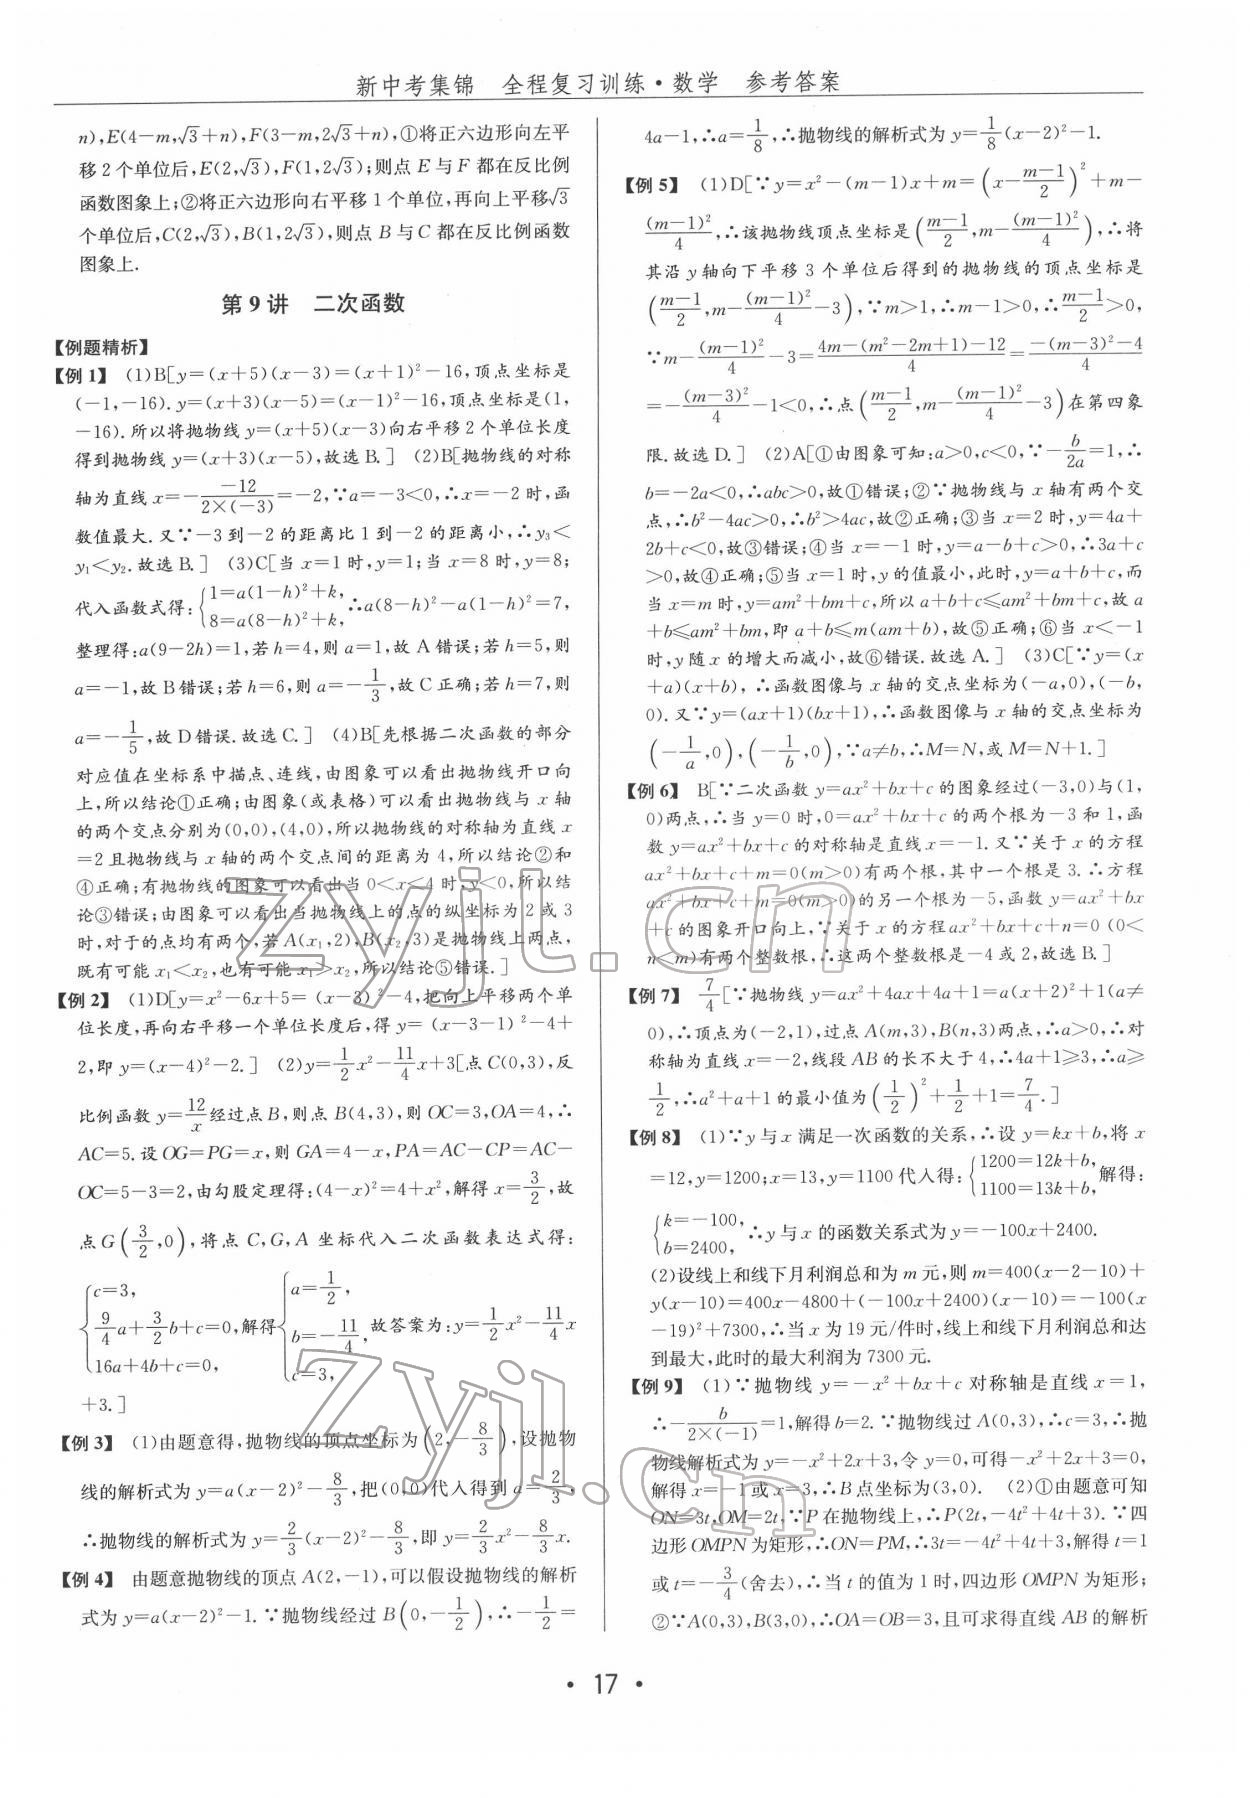 新中考集锦 全程复习训练·数学 参考答案
n),E(4-m,√3+n),F(3-m,2√3+n),①将正六边形向左平
移2个单位后,E(2,√3),F(1,2√3);则点E与F都在反比例
函数图象上;②将正六边形向右平移1个单位,再向上平移√3
个单位后,C(2,√3),B(1,2√3),则点B与C都在反比例函数
图象上.
第9讲 二次函数
【例题精析】
【例1】 (1)B[y=(x+5)(x-3)=(x+1)²-16,顶点坐标是
(-1,-16).y=(x+3)(x-5)=(x-1)²-16,顶点坐标是(1,
-16).所以将抛物线y=(x+5)(x-3)向右平移2个单位长度
得到抛物线y=(x+3)(x-5),故选B.] (2)B[抛物线的对称
轴为直线x=-\frac{-12}{2×(-3)}=-2,∵a=-3<0,∴x=-2时,函
数值最大.又∵-3到-2的距离比1到-2的距离小,∴y₃<
y₁<y₂.故选B.] (3)C[当x=1时,y=1;当x=8时,y=8;
代入函数式得:{1=a(1-h)²+k, 8=a(8-h)²+k, ∴a(8-h)²-a(1-h)²=7,
整理得:a(9-2h)=1,若h=4,则a=1,故A错误;若h=5,则
a=-1,故B错误;若h=6,则a=-\frac{1}{3},故C正确;若h=7,则
a=-\frac{1}{5},故D错误.故选C.] (4)B[先根据二次函数的部分
对应值在坐标系中描点、连线,由图象可以看出抛物线开口向
上,所以结论①正确;由图象(或表格)可以看出抛物线与x轴
的两个交点分别为(0,0),(4,0),所以抛物线的对称轴为直线x
=2且抛物线与x轴的两个交点间的距离为4,所以结论②和
④正确;有抛物线的图象可以看出当0<x<4时,y<0,所以结
论③错误;由图象可以看出当抛物线上的点的纵坐标为2或3
时,对于的点均有两个,若A(x₁,2),B(x₂,3)是抛物线上两点,
既有可能x₁<x₂,也有可能x₁>x₂,所以结论⑤错误.]
【例2】 (1)D[y=x²-6x+5=(x-3)²-4,把向上平移两个单
位长度,再向右平移一个单位长度后,得y=(x-3-1)²-4+
2,即y=(x-4)²-2.] (2)y=\frac{1}{2}x²-\frac{11}{4}x+3[点C(0,3),反
比例函数y=\frac{12}{x}经过点B,则点B(4,3),则OC=3,OA=4,∴
AC=5.设OG=PG=x,则GA=4-x,PA=AC-CP=AC-
OC=5-3=2,由勾股定理得:(4-x)²=4+x²,解得x=\frac{3}{2},故
点G(\frac{3}{2},0),将点C,G,A坐标代入二次函数表达式得:
{c=3, \frac{9}{4}a+\frac{3}{2}b+c=0, 16a+4b+c=0, 解得{a=\frac{1}{2}, b=-\frac{11}{4}, c=3, 故答案为:y=\frac{1}{2}x²-\frac{11}{4}x
+3.]
【例3】 (1)由题意得,抛物线的顶点坐标为(2,-\frac{8}{3}),设抛物
线的解析式为y=a(x-2)²-\frac{8}{3},把(0,0)代入得到a=\frac{2}{3},
∴抛物线的解析式为y=\frac{2}{3}(x-2)²-\frac{8}{3},即y=\frac{2}{3}x²-\frac{8}{3}x.
【例4】 由题意抛物线的顶点A(2,-1),可以假设抛物线的解析
式为y=a(x-2)²-1.∵抛物线经过B(0,-\frac{1}{2}),∴-\frac{1}{2}=
4a-1,∴a=\frac{1}{8},∴抛物线的解析式为y=\frac{1}{8}(x-2)²-1.
【例5】 (1)D[∵y=x²-(m-1)x+m=(x-\frac{m-1}{2})²+m-
\frac{(m-1)²}{4},∴该抛物线顶点坐标是(\frac{m-1}{2},m-\frac{(m-1)²}{4}),∴将
其沿y轴向下平移3个单位后得到的抛物线的顶点坐标是
(\frac{m-1}{2},m-\frac{(m-1)²}{4}-3),∵m>1,∴m-1>0,∴\frac{m-1}{2}>0,
∵m-\frac{(m-1)²}{4}-3=\frac{4m-(m²-2m+1)-12}{4}=\frac{-(m-3)²-4}{4}
=-\frac{(m-3)²}{4}-1<0,∴点(\frac{m-1}{2},m-\frac{(m-1)²}{4}-3)在第四象
限.故选D.] (2)A[①由图象可知:a>0,c<0,∵-\frac{b}{2a}=1,∴
b=-2a<0,∴abc>0,故①错误;②∵抛物线与x轴有两个交
点,∴b²-4ac>0,∴b²>4ac,故②正确;③当x=2时,y=4a+
2b+c<0,故③错误;④当x=-1时,y=a-b+c>0,∴3a+c
>0,故④正确;⑤当x=1时,y的值最小,此时,y=a+b+c,而
当x=m时,y=am²+bm+c,所以a+b+c≤am²+bm+c,故a
+b≤am²+bm,即a+b≤m(am+b),故⑤正确;⑥当x<-1
时,y随x的增大而减小,故⑥错误.故选A.] (3)C[∵y=(x
+a)(x+b),∴函数图像与x轴的交点坐标为(-a,0),(-b,
0).又∵y=(ax+1)(bx+1),∴函数图像与x轴的交点坐标为
(-\frac{1}{a},0),(-\frac{1}{b},0),∵a≠b,∴M=N,或M=N+1.]
【例6】 B[∵二次函数y=ax²+bx+c的图象经过(-3,0)与(1,
0)两点,∴当y=0时,0=ax²+bx+c的两个根为-3和1,函
数y=ax²+bx+c的对称轴是直线x=-1.又∵关于x的方程
ax²+bx+c+m=0(m>0)有两个根,其中一个根是3.∴方程
ax²+bx+c+m=0(m>0)的另一个根为-5,函数y=ax²+bx
+c的图象开口向上,∵关于x的方程ax²+bx+c+n=0(0<
n<m)有两个整数根,∴这两个整数根是-4或2,故选B.]
【例7】 \frac{7}{4}[∵抛物线y=ax²+4ax+4a+1=a(x+2)²+1(a≠
0),∴顶点为(-2,1),过点A(m,3),B(n,3)两点,∴a>0,∴对
称轴为直线x=-2,线段AB的长不大于4,∴4a+1≥3,∴a≥
\frac{1}{2},∴a²+a+1的最小值为(\frac{1}{2})²+\frac{1}{2}+1=\frac{7}{4}.]
【例8】 (1)∵y与x满足一次函数的关系,∴设y=kx+b,将x
=12,y=1200;x=13,y=1100代入得:{1200=12k+b, 1100=13k+b, 解得:
{k=-100, b=2400, ∴y与x的函数关系式为y=-100x+2400.
(2)设线上和线下月利润总和为m元,则m=400(x-2-10)+
y(x-10)=400x-4800+(-100x+2400)(x-10)=-100(x
-19)²+7300,∴当x为19元/件时,线上和线下月利润总和达
到最大,此时的最大利润为7300元.
【例9】 (1)∵抛物线y=-x²+bx+c对称轴是直线x=1,
∴-\frac{b}{2×(-1)}=1,解得b=2.∵抛物线过A(0,3),∴c=3,∴抛
物线解析式为y=-x²+2x+3,令y=0,可得-x²+2x+3=0,
解得x=-1或x=3,∴B点坐标为(3,0). (2)①由题意可知
ON=3t,OM=2t,∵P在抛物线上,∴P(2t,-4t²+4t+3).∵四
边形OMPN为矩形,∴ON=PM,∴3t=-4t²+4t+3,解得t=1
或t=-\frac{3}{4}(舍去),∴当t的值为1时,四边形OMPN为矩形;
②∵A(0,3),B(3,0),∴OA=OB=3,且可求得直线AB的解析
· 17 ·
zyjl.cn
zyjl.cn